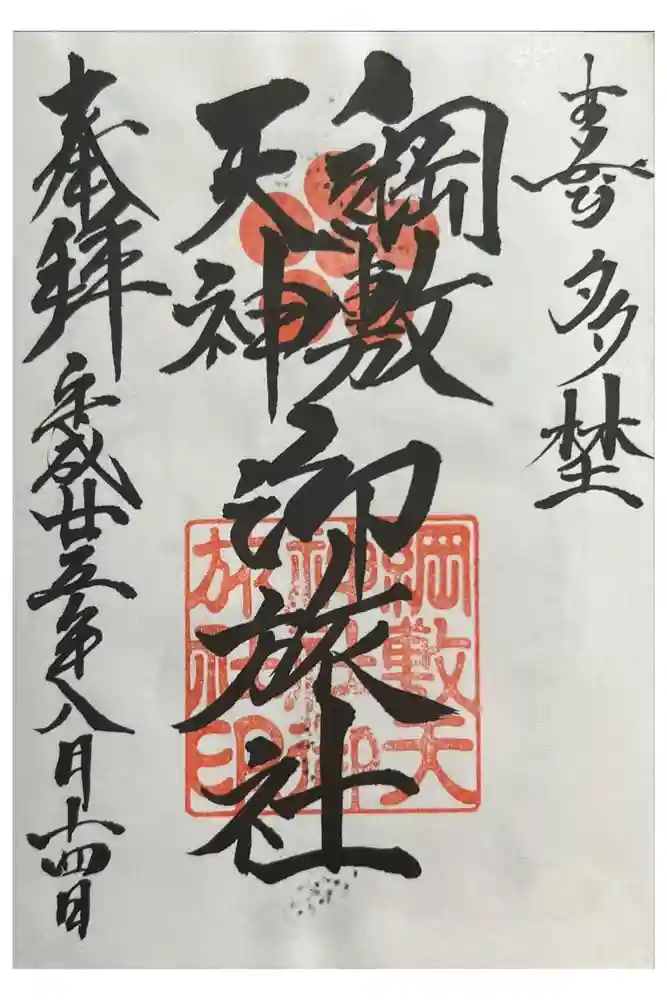 喜多埜
綱敷
天神
御旅社
奉拝
平成廿五年八月十四日
綱敷天
神社御
旅社印